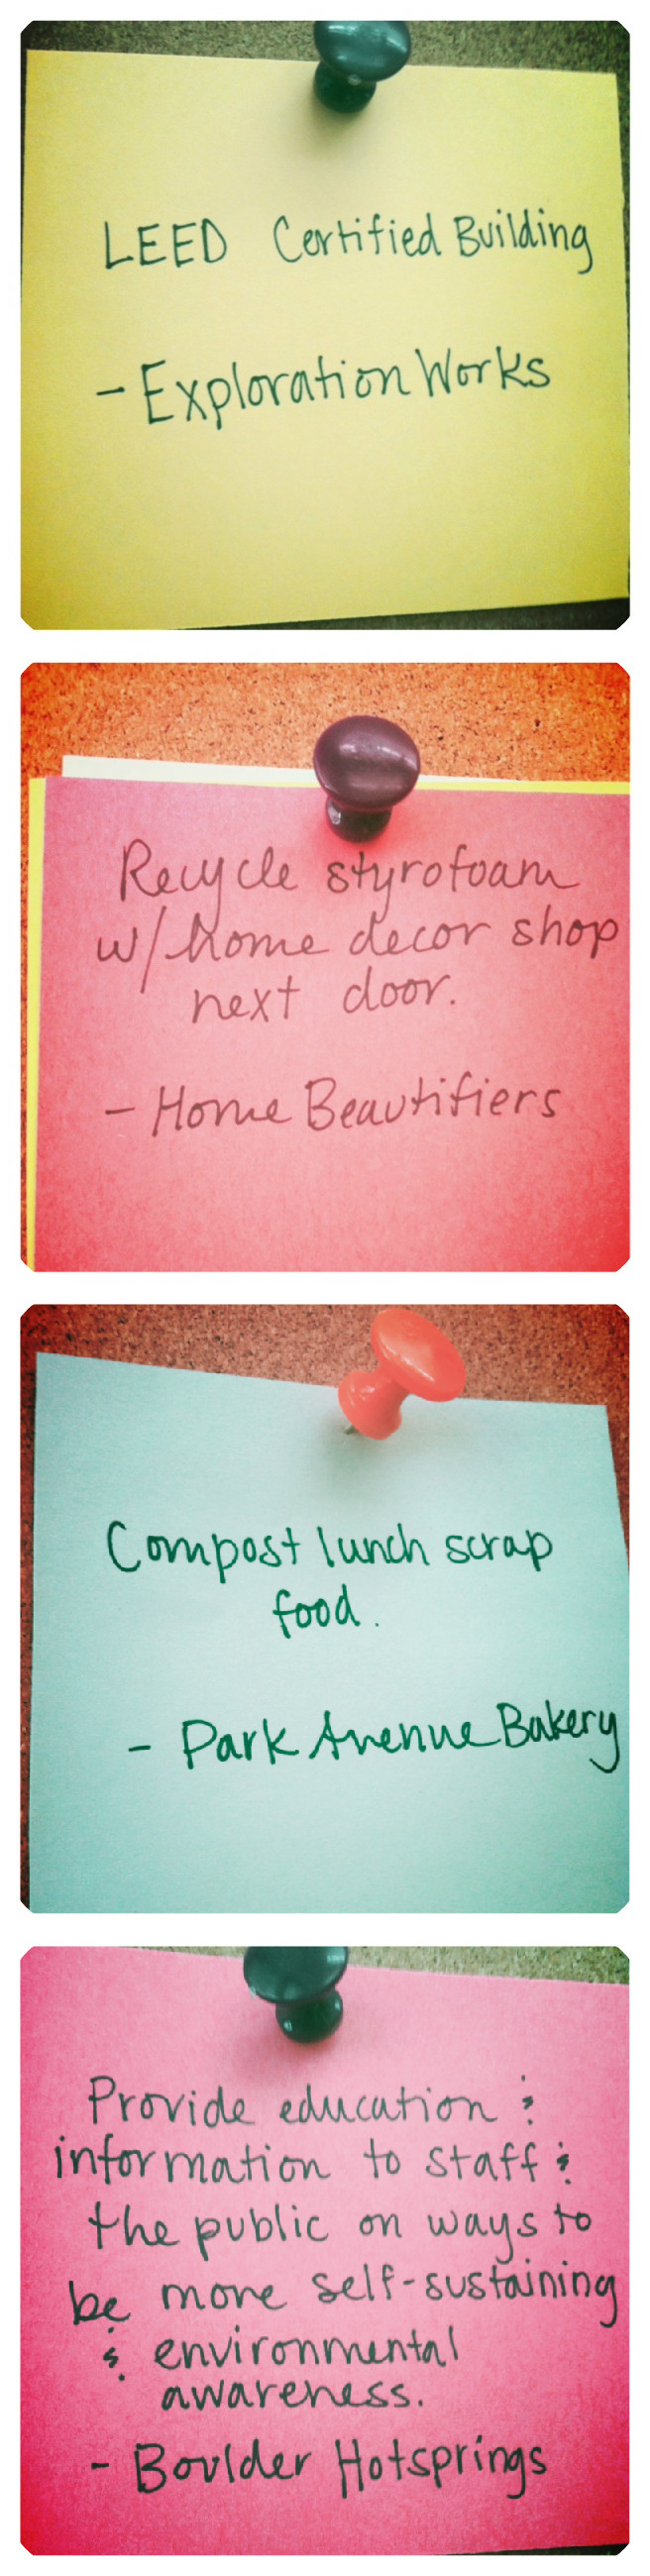 LEED Certified Building
- Exploration Works
Recycle styrofoam
w/ home decor shop
next door.
- Home Beautifiers
Compost lunch scrap
food.
- Park Avenue Bakery
Provide education &
information to staff &
the public on ways to
be more self-sustaining
& environmental
awareness.
- Boulder Hotsprings